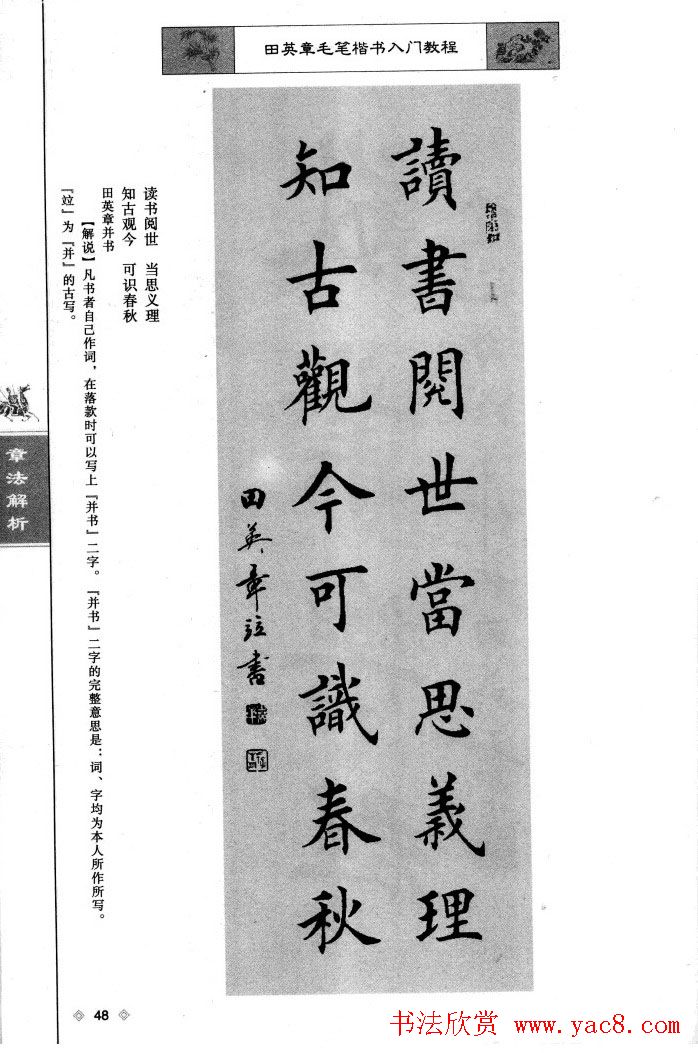 田英章毛笔楷书入门教程
讀書閱世當思義理
知古觀今可識春秋
田英章竝書
读书阅世 当思义理
知古观今 可识春秋
田英章并书
【解说】凡书者自己作词，在落款时可以写上『并书』二字。『并书』二字的完整意思是：词、字均为本人所作所写。
『竝』为『并』的古写。
章法解析
48
书法欣赏 www.yac8.com